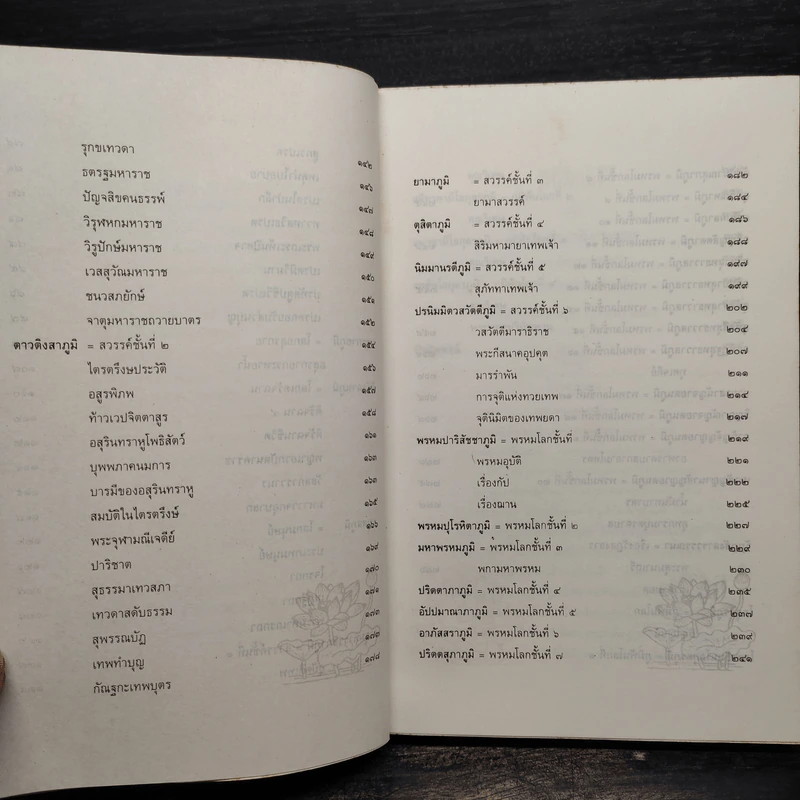 รุกขเทวดา ๑๔๒
ธตรฐมหาราช ๑๔๖
ปัญจสิขคนธรรพ์ ๑๔๗
วิรุฬหกมหาราช ๑๔๘
วิรูปักษ์มหาราช ๑๔๙
เวสสุวัณมหาราช ๑๕๐
ชนวสภยักษ์ ๑๕๑
จาตุมหาราชถวายบาตร ๑๕๒
ตาวติงสาภูมิ = สวรรค์ชั้นที่ ๒ ๑๕๔
ไตรตรึงษประวัติ ๑๕๖
อสูรพิภพ ๑๕๗
ท้าวเวปจิตตาสูร ๑๕๘
อสุรินทราหูโพธิสัตว์ ๑๖๑
บุพพภาคนมการ ๑๖๓
บารมีของอสุรินทราหู ๑๖๓
สมบัติในไตรตรึงษ์ ๑๖๕
พระจุฬามณีเจดีย์ ๑๖๖
ปาริชาต ๑๖๙
สุธรรมาเทวสภา ๑๗๐
เทวดาสดับธรรม ๑๗๑
สุพรรณบัฏ ๑๗๓
เทพทำบุญ ๑๗๓
กัณฐกะเทพบุตร ๑๗๘
ยามาภูมิ = สวรรค์ชั้นที่ ๓ ๑๘๒
ยามาสวรรค์ ๑๘๔
ตุสิตาภูมิ = สวรรค์ชั้นที่ ๔ ๑๘๖
สิริมหามายาเทพเจ้า ๑๘๘
นิมมานรตีภูมิ = สวรรค์ชั้นที่ ๕ ๑๙๗
สุภัททาเทพเจ้า ๑๙๙
ปรนิมมิตวสวัตตีภูมิ = สวรรค์ชั้นที่ ๖ ๒๐๒
วสวัตตีมาราธิราช ๒๐๔
พระกีสนาคอุปคุต ๒๐๗
มารรำพัน ๒๑๑
การจุติแห่งทวยเทพ ๒๑๔
จุตินิมิตของเทพยดา ๒๑๗
พรหมปาริสัชชาภูมิ = พรหมโลกชั้นที่ ๒๑๙
พรหมอุบัติ ๒๒๑
เรื่องกัป ๒๒๒
เรื่องฌาน ๒๒๕
พรหมปุโรหิตาภูมิ = พรหมโลกชั้นที่ ๒ ๒๒๗
มหาพรหมภูมิ = พรหมโลกชั้นที่ ๓ ๒๒๙
พกามหาพรหม ๒๓๐
ปริตตาภาภูมิ = พรหมโลกชั้นที่ ๔ ๒๓๕
อัปปมาณาภาภูมิ = พรหมโลกชั้นที่ ๕ ๒๓๗
อาภัสสราภูมิ = พรหมโลกชั้นที่ ๖ ๒๓๙
ปริตตสุภาภูมิ = พรหมโลกชั้นที่ ๗ ๒๔๑